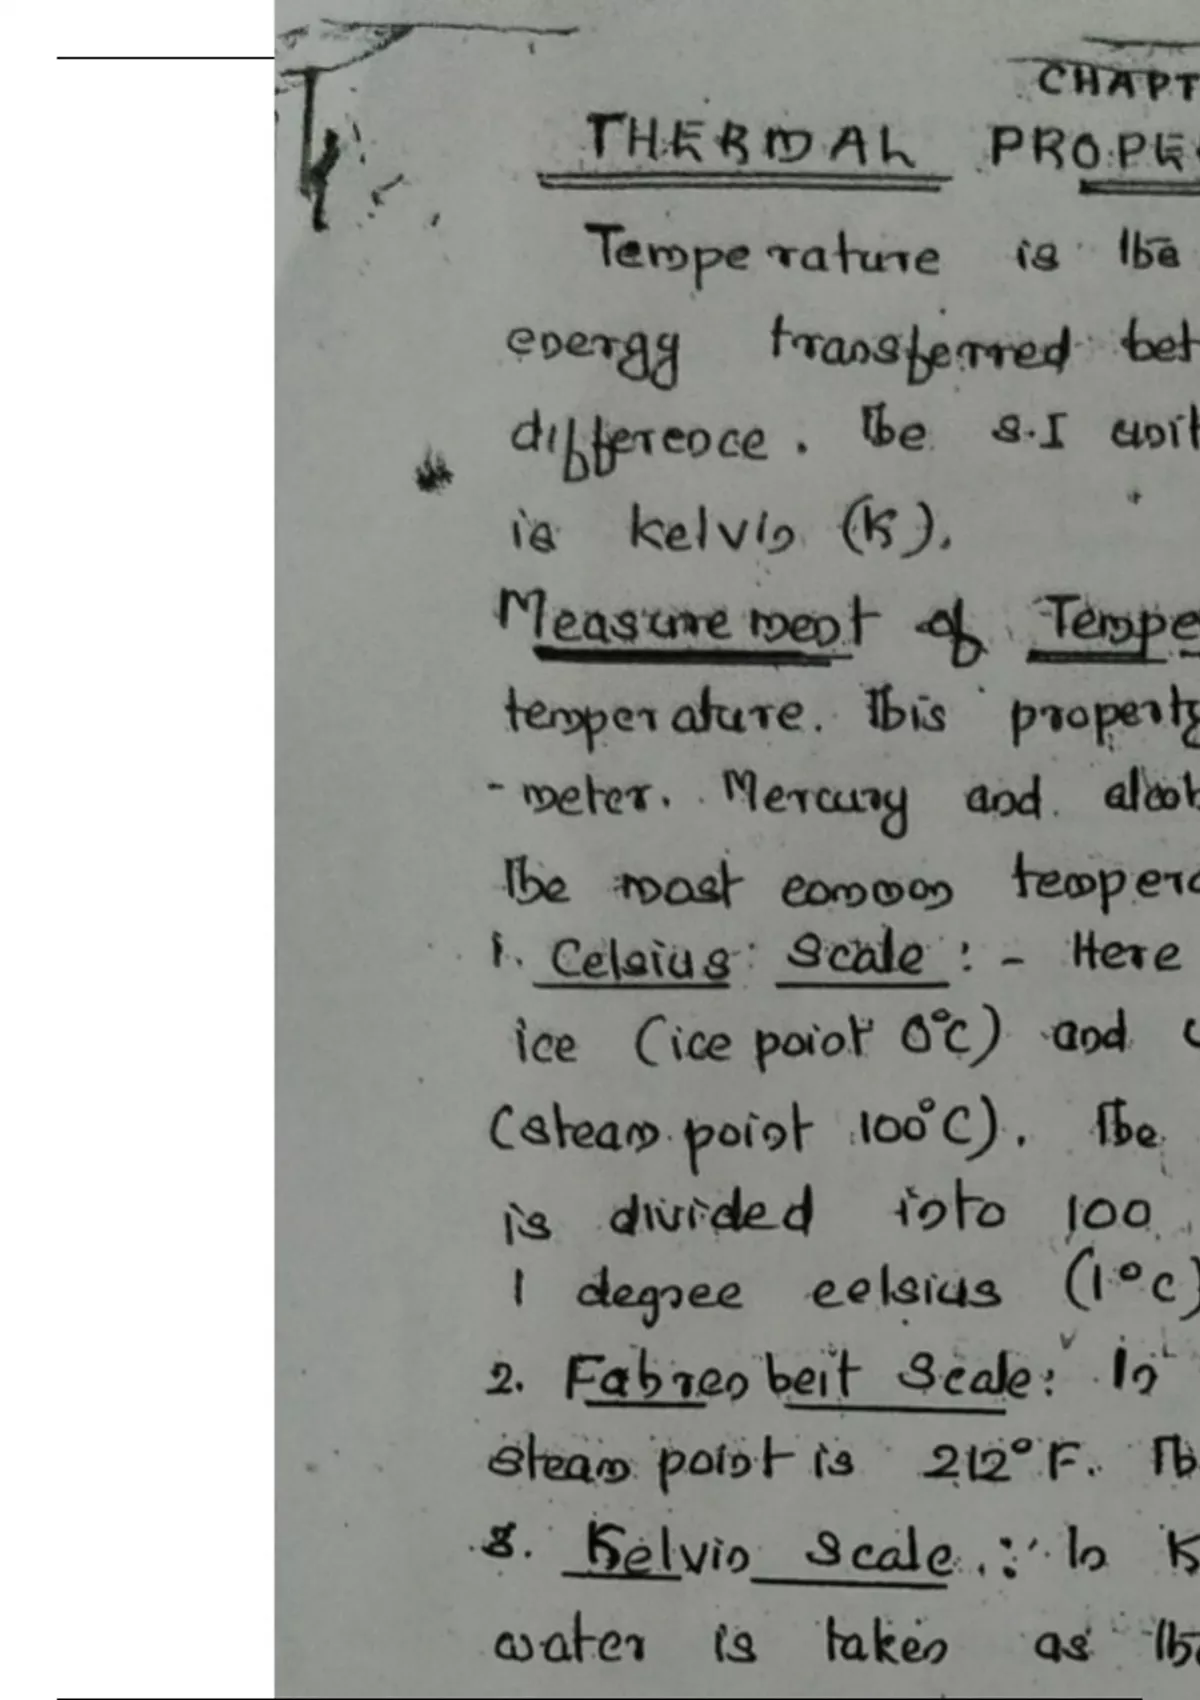 CHAPT
THERMAL PROPE
Temperature is the
energy transferred bet
difference. The S.I unit
is kelvin (K).
Measurement of Tempe
temperature. This property
-meter. Mercury and alcoh
The most common tempera
1. Celsius Scale :- Here
ice (ice point 0°C) and
(steam point 100°C). The
is divided into 100
1 degree celsius (1°C)
2. Fahrenheit Scale: In
steam point is 212°F. Th
3. Kelvin Scale : In K
water is taken as the